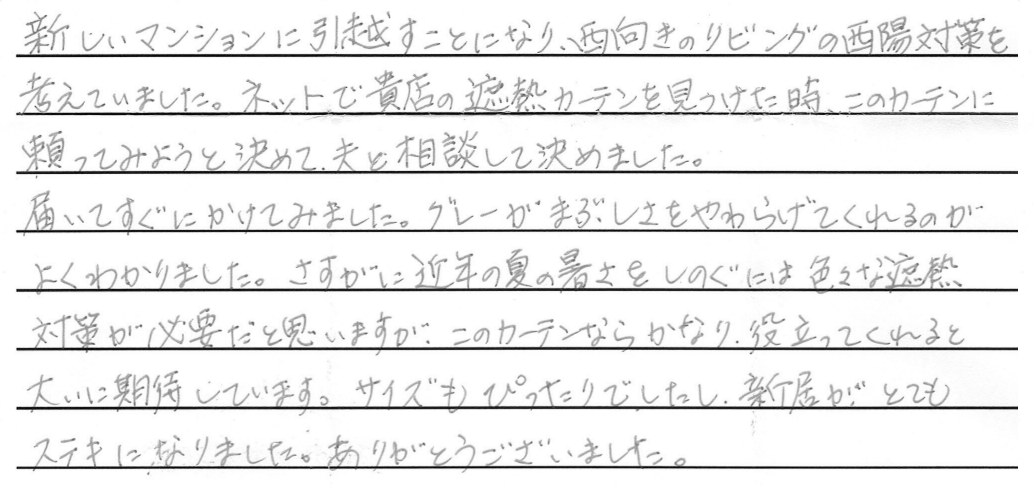 新しいマンションに引越すことになり、西向きのリビングの西陽対策を
考えていました。ネットで貴店の遮熱カーテンを見つけた時、このカーテンに
頼ってみようと決めて、夫と相談して決めました。
届いてすぐにかけてみました。グレーがまぶしさをやわらげてくれるのが
よくわかりました。さすがに近年の夏の暑さをしのぐには色々な遮熱
対策が必要だと思いますが、このカーテンならかなり、役立ってくれると
大いに期待しています。サイズもぴったりでしたし、新居がとても
ステキになりました。ありがとうございました。